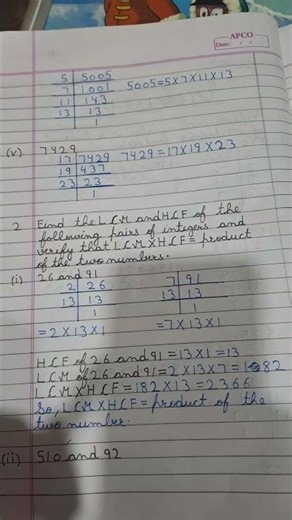 APCO
Date:
5 | 5005
7 | 1001 5005=5×7×11×13
11 | 143
13 | 13
1
(v) 7429
17 | 7429 7429=17×19×23
19 | 437
23 | 23
1
2 Find the LCM and HCF of the
following pairs of integers and
verify that LCM×HCF= product
of the two numbers.
(i) 26 and 91
2 | 26 7 | 91
13 | 13 13 | 13
1 1
=2×13×1 =7×13×1
HCF of 26 and 91 =13×1=13
LCM of 26 and 91 =2×13×7=182
LCM×HCF=182×13=2366
So, LCM×HCF= product of the
two number.
(ii) 510 and 92